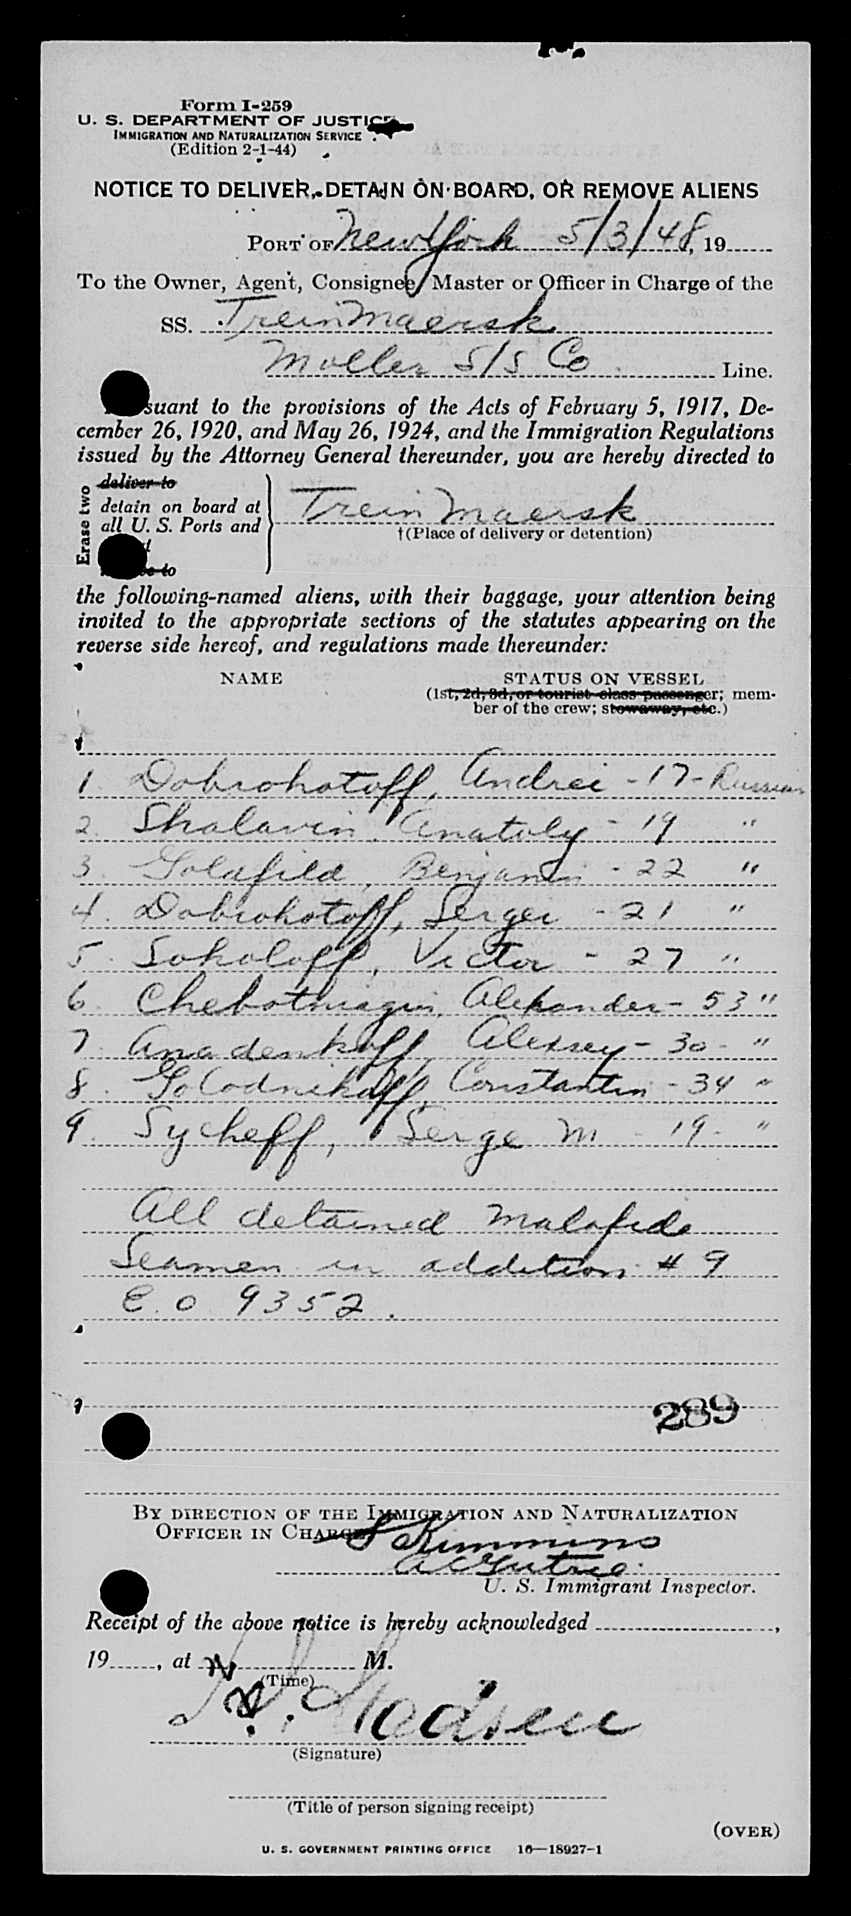 Form I-259
U. S. DEPARTMENT OF JUSTICE
IMMIGRATION AND NATURALIZATION SERVICE
(Edition 2-1-44)
NOTICE TO DELIVER, DETAIN ON BOARD, OR REMOVE ALIENS
PORT OF New York 5/3/48, 19
To the Owner, Agent, Consignee, Master or Officer in Charge of the
SS. Trein Maersk
Moller S/S Co Line.
suant to the provisions of the Acts of February 5, 1917, De-
cember 26, 1920, and May 26, 1924, and the Immigration Regulations
issued by the Attorney General thereunder, you are hereby directed to
Erase two
deliver to
detain on board at
all U. S. Ports and
to
Trein Maersk
†(Place of delivery or detention)
the following-named aliens, with their baggage, your attention being
invited to the appropriate sections of the statutes appearing on the
reverse side hereof, and regulations made thereunder:
NAME STATUS ON VESSEL
(1st, 2d, 3d, or tourist class passenger; mem-
ber of the crew; stowaway, etc.)
1. Dobrohotoff, Andrei - 17 - Russian
2. Shalavin, Anatoly - 19 "
3. Goldfild, Benjamin - 22 "
4. Dobrohotoff, Sergei - 21 "
5. Sokoloff, Victor - 27 "
6. Alexander - 53 "
7. Anadenkoff, Alexsey - 30 - "
8. Golodnikoff, Constantin - 34 "
9. Sycheff, Serge M - 19 - "
All detained Malafide
Seamen in addition # 9
E. O 9352.
289
BY DIRECTION OF THE IMMIGRATION AND NATURALIZATION
OFFICER IN CHARGE
S Kimmins
U. S. Immigrant Inspector.
Receipt of the above notice is hereby acknowledged ,
19 , at M.
(Time)
(Signature)
(Title of person signing receipt)
(OVER)
U. S. GOVERNMENT PRINTING OFFICE 16—18927-1